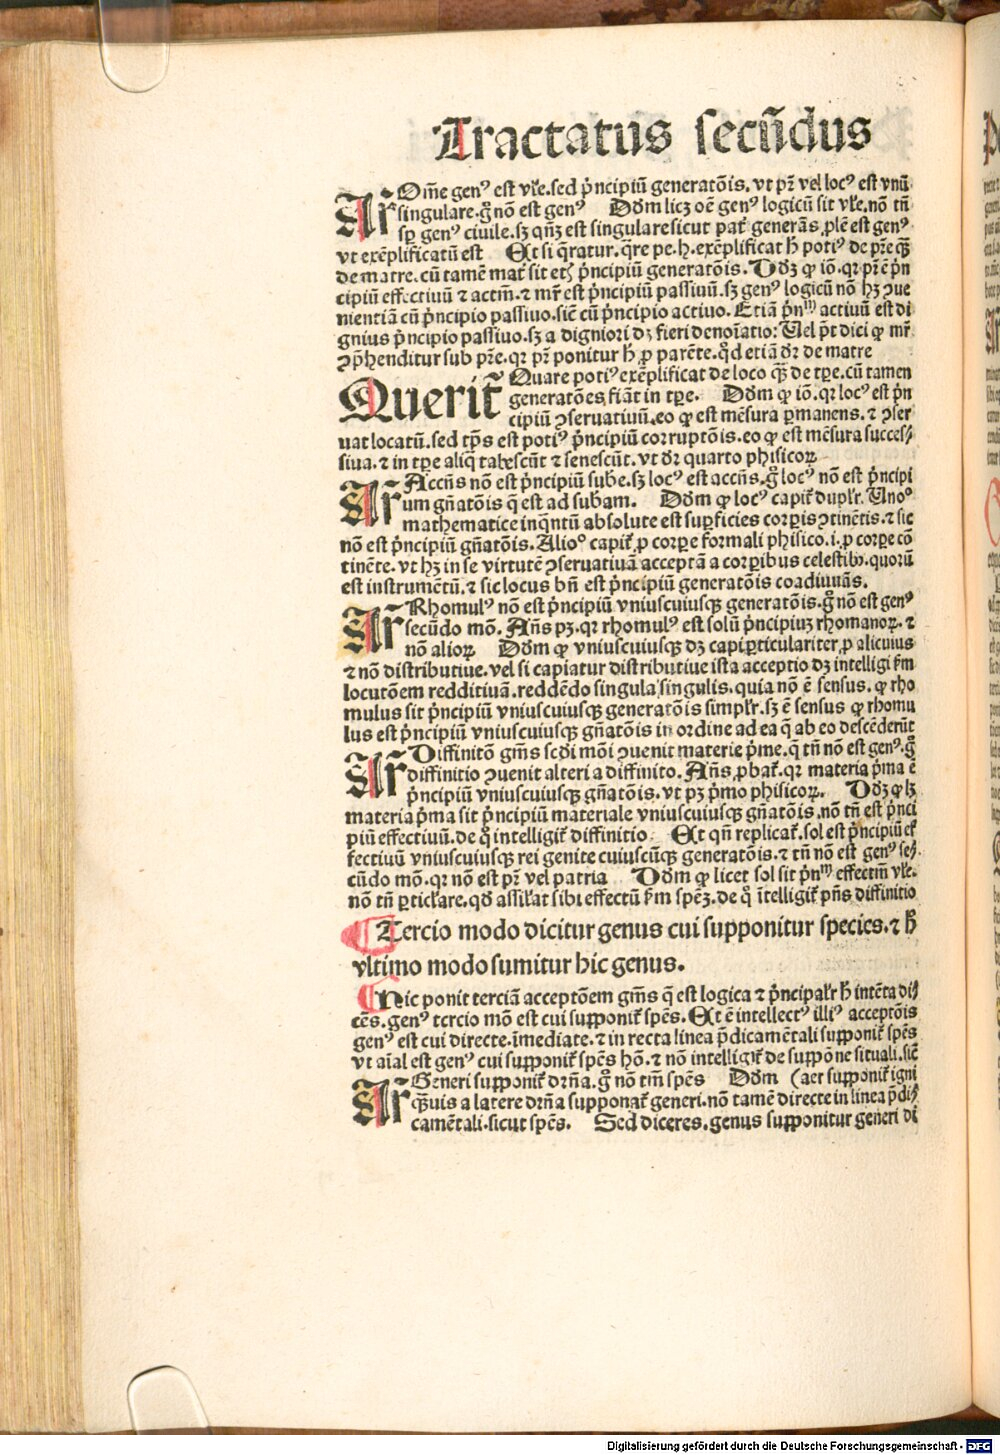 Tractatus secūdus
Ar̄ Om̄e genꝰ est vl̄e.sed p̄ncipiū generatōis.vt pr̄ vel locꝰ est vnū
singulare.g̊ nō est genꝰ Dd̄m licꝫ oē genꝰ logicū sit vl̄e.nō tn̄
sꝑ genꝰ ciuile.sꝫ qn̄qꝫ est singulare sicut pat̄ generās ꝓlē est genꝰ
vt exēplificatū est Et si q̄ratur.q̄re pe.h.exēplificat h̄ potiꝰ de pr̄e qꝫ̄
de matre.cū tamē mat̄ sit etꝫ p̄ncipiū generatōis. Dd̄ꝫ ꝙ iō.qꝛ pr̄ ē p̄n
cipiū effectiuū ⁊ actiu̅.⁊ mr̄ est p̄ncipiū passiuū.sꝫ genꝰ logicū nō hꝫ ꝯue
nientiā cū p̄ncipio passiuo.sic̄ cū p̄ncipio actiuo. Etiā p̄nᵐ actiuū est di
gnius p̄ncipio passiuo.sꝫ a digniori dꝫ fieri denoīatio: Uel p̄t dici ꝙ mr̄
ꝯp̄henditur sub pr̄e.qꝛ pr̄ ponitur h̄ ꝓ parēte.qd̄ etiā dr̄ de matre
Querit̄ Quare potiꝰ exēplificat de loco qꝫ̄ de tp̄e.cū tamen
generatōes fiāt in tp̄e. Dd̄m ꝙ iō.qꝛ locꝰ est p̄n
cipiū ꝯseruatiuū.eo ꝙ est mēsura ꝑmanens.⁊ ꝯser
uat locatū.sed tp̄s est potiꝰ p̄ncipiū corruptōis.eo ꝙ est mēsura succes/
siua.⁊ in tp̄e aliq̄ tabescūt ⁊ senescūt.vt dr̄ quarto phisicoꝝ
Ar̄ Accn̄s nō est p̄ncipiū sube.sꝫ locꝰ est accn̄s.g̊ locꝰ nō est p̄ncipi
um gn̄atōis q̄ est ad subam. Dd̄m ꝙ locꝰ capit̄ duplr̄. Unoº
mathematice inq̄ntū absolute est suꝑficies corꝑis ꝯtinētis.⁊ sic
nō est p̄ncipiū gn̄atōis. Alioº capit̄ ꝓ corꝑe formali phisico.i.ꝓ corꝑe cō
tinēte.vt hꝫ in se virtutē ꝯseruatiuā acceptā a corꝑibus celestibꝫ.quorū
est instrumētū.⁊ sic locus bn̄ est p̄ncipiū generatōis coadiuuās.
Ar̄ Rhomulꝰ nō est p̄ncipiū vniuscuiusqꝫ generatōis.g̊ nō est genꝰ
secūdo mō. An̄s pꝫ.qꝛ rhomulꝰ est solū p̄ncipiuꝫ rhomanoꝝ.⁊
nō alioꝝ Dd̄m ꝙ vniuscuiusqꝫ dꝫ capi ꝑticulariter,ꝓ alicuius
⁊ nō distributiue.vel si capiatur distributiue ista acceptio dꝫ intelligi fm̄
locutōem redditiuā.reddēdo singula singulis.quia nō ē sensus.ꝙ rho
mulus sit p̄ncipiū vniuscuiusqꝫ generatōis simplr̄.sꝫ ē sensus ꝙ rhomu
lus est p̄ncipiū vniuscuiusqꝫ gn̄atōis in ordine ad ea q̄ ab eo descēderūt
Ar̄ Diffinitō gn̄is scd̄i mōi ꝯuenit materie p̄me.q̄ tn̄ nō est genꝰ.g̊
diffinitio ꝯuenit alteri a diffinito. An̄s ꝓbat̄.qꝛ materia p̄ma ē
p̄ncipiū vniuscuiusqꝫ gn̄atōis.vt pꝫ p̄mo phisicoꝝ. Dd̄ꝫ ꝙ lꝫ
materia p̄ma sit p̄ncipiū materiale vniuscuiusqꝫ gn̄atōis.nō tn̄ est p̄nci
piū effectiuū.de q̊ intelligit̄ diffinitio Et qn̄ replicat̄.sol est p̄ncipiū ef
fectiuū vniuscuiusqꝫ rei genite cuiuscūqꝫ generatōis.⁊ tn̄ nō est genꝰ se/
cūdo mō.qꝛ nō est pr̄ vel patria Dd̄m ꝙ licet sol sit p̄nᵐ effectiu̅ vl̄e.
nō tn̄ ꝑticl̄are.qd̄ assil̄at sibi effectū fm̄ spēꝫ.de q̊ ītelligit̄ p̄n̄s diffinitio
Tercio modo dicitur genus cui supponitur species.⁊ h̄
vltimo modo sumitur hic genus.
Hic ponit terciā acceptōem gn̄is q̄ est logica ⁊ p̄ncipalr̄ h̄ intēta di/
cēs.genꝰ tercio mō est cui supponit̄ spēs. Et ē intellectꝰ illiꝰ acceptōis
genꝰ est cui directe.īmediate.⁊ in recta linea p̄dicamētali supponit̄ spēs
vt aīal est genꝰ cui supponit̄ spēs hō.⁊ nō intelligit̄ de suppōne situali.sic̄
Ar̄ Generi supponit̄ drn̄a.g̊ nō tm̄ spēs Dd̄m (aer supponit̄ igni
qꝫ̄uis a latere drn̄a supponat̄ generi.nō tamē directe in linea p̄di/
camētali.sicut spēs. Sed diceres.genus supponitur generi di
Digitalisierung gefördert durch die Deutsche Forschungsgemeinschaft - DFG